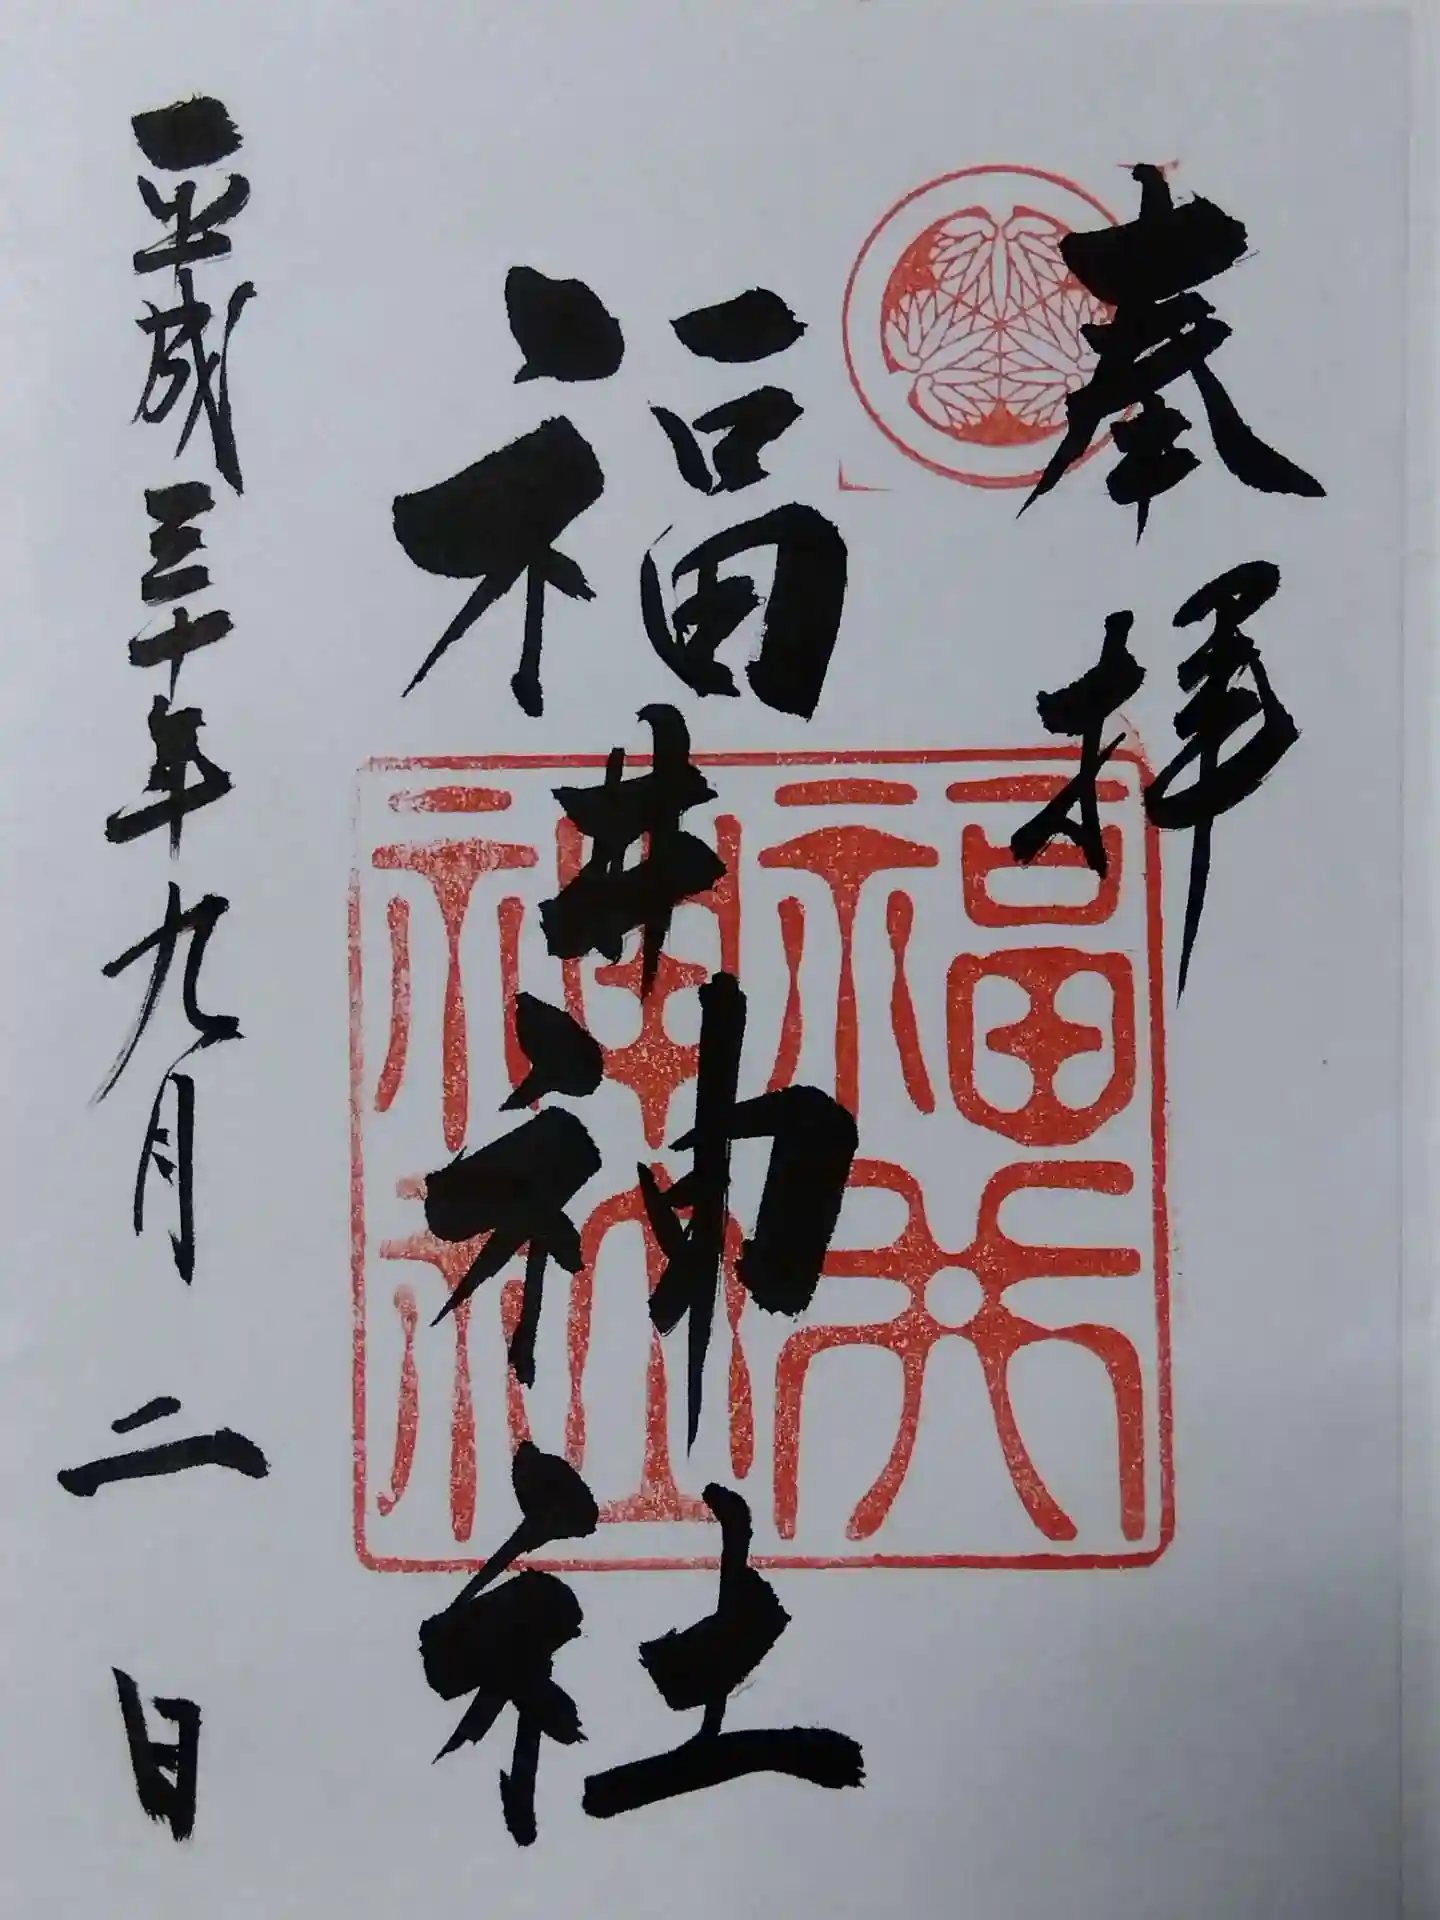 奉拝
福井神社
福井神社
平成三十年九月二日